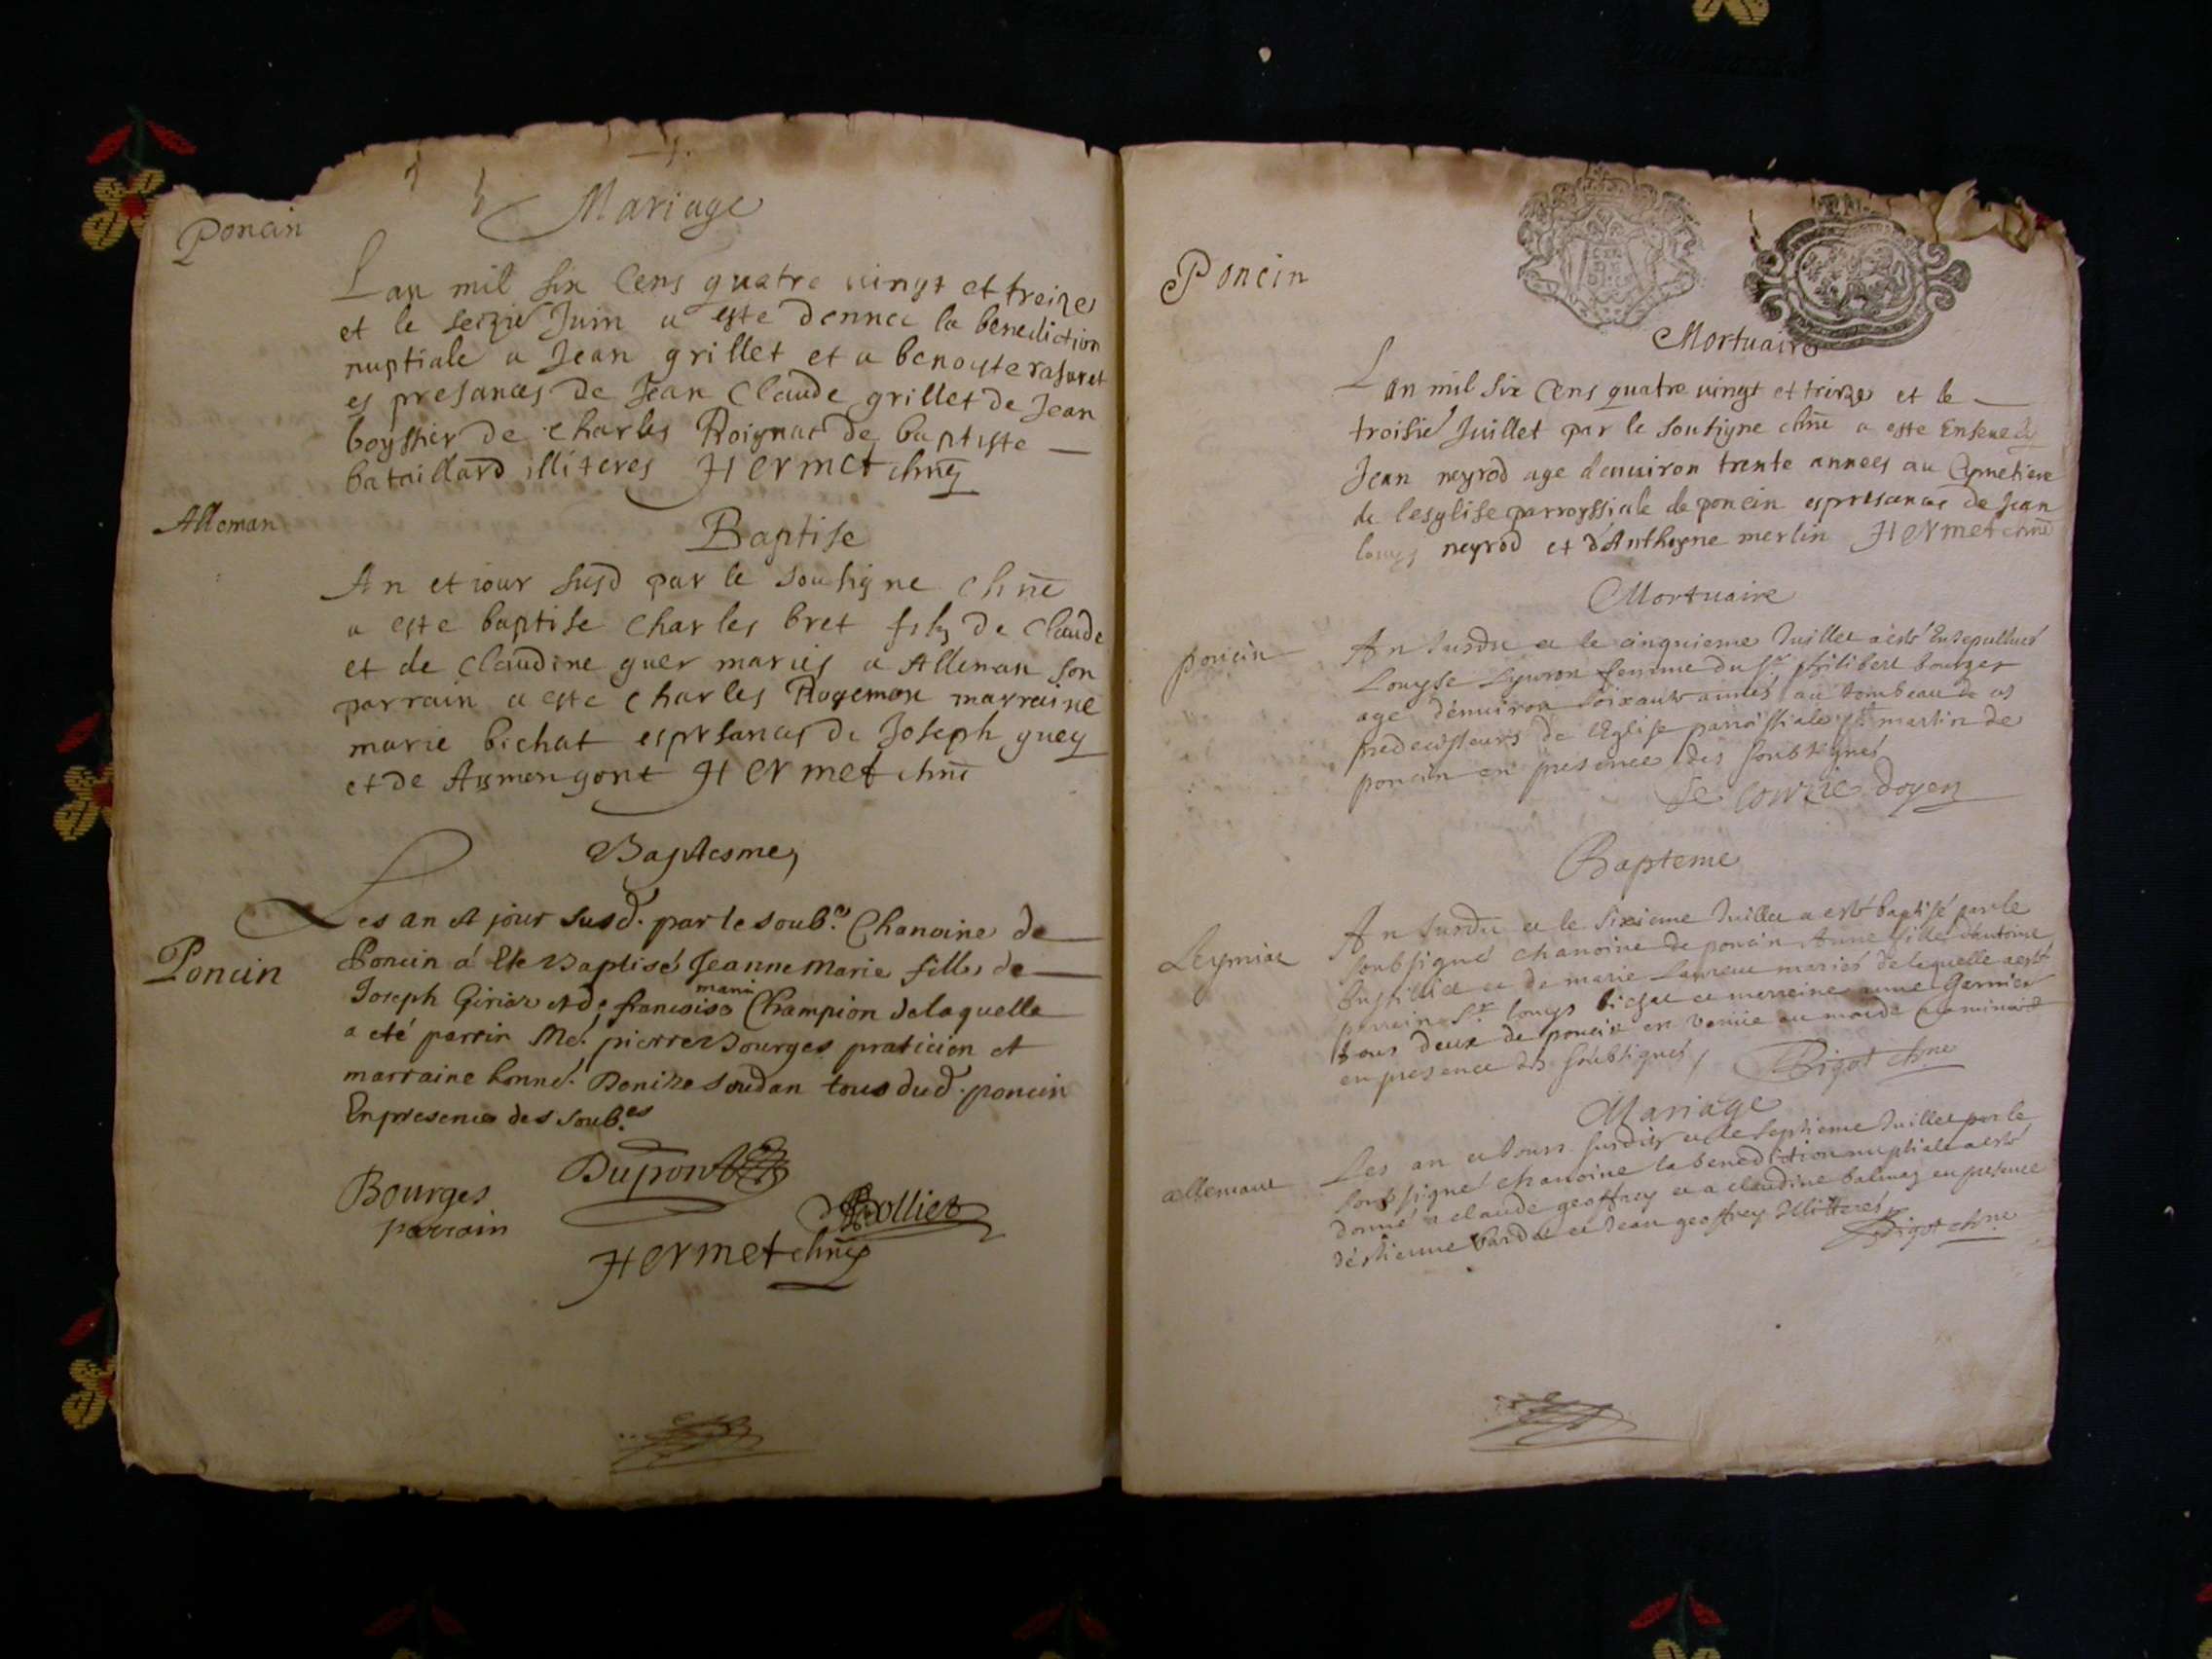 Mariage
Poncin
Lan mil six Cens quatre vingt et treize
et le seizie Juin a este donnee la benediction
nuptiale a Jean grillet et a benoyste rasuret
es presances de Jean Claude grillet de Jean
boyssier de charles Roignat de baptiste
bataillard illiteres Hermet chne
Alleman
Baptise
An et iour susd par le sousigne chne
a este baptise charles bret fils de Claude
et de claudine guer maries a Alleman son
parrain a este charles Rogemon marraine
marie bichat es presances de Joseph guey
et de Hermet chne
Baptesme
Les an et jour susd. par le soub.e Chanoine de
Poncin
Poncin á Ete Baptisé Jeanne Marie fille de
Joseph et de francoise marie Champion de laquelle
a eté parrin Me. pierre Bourges praticien et
marraine honne. Denize soudan tous dud. poncin
En presence des soub.es
Dupont
Bourges
parrain
Bolliet
Hermet chne
Poncin
Mortuaire
Lan mil six Cens quatre vingt et treize et le
troisie Juillet par le sousigne chne a este Enseuely
Jean neyrod age denuiron trente annees au Cymetiere
de lesglise parroyssiale de poncin es presances de Jean
louys neyrod et d'Anthoyne merlin Hermet chne
Mortuaire
poncin
An susdit et le cinquieme Juillet a esté Ensepulturé
Louyse Lyuron femme du Sr philibert bourges
age dénuiron soixante annés au tombeau de ces
predecesseurs de lEglise parroissiale st martin de
poncin en presence des soubsignés
doyen
Bapteme
Leymiat
An susdit et le sixieme Juillet a esté baptisé par le
soubsigné chanoine de poncin Anne fille dantoine
et de marie mariés de laquelle a esté
parrain Sr. louys bichat et marreine anne Garnier
tous deux de poncin en venue au monde
en presence des soubsignés Bigot chne
Mariage
allemant
Les an et Jours susdits et le septieme Juillet par le
soubsigné chanoine la benediction nuptiale a esté
donné a claude geoffrey et a claudine balmay en presence
déstienne bardet et Jean geoffrey Illitterés
Bigot chne